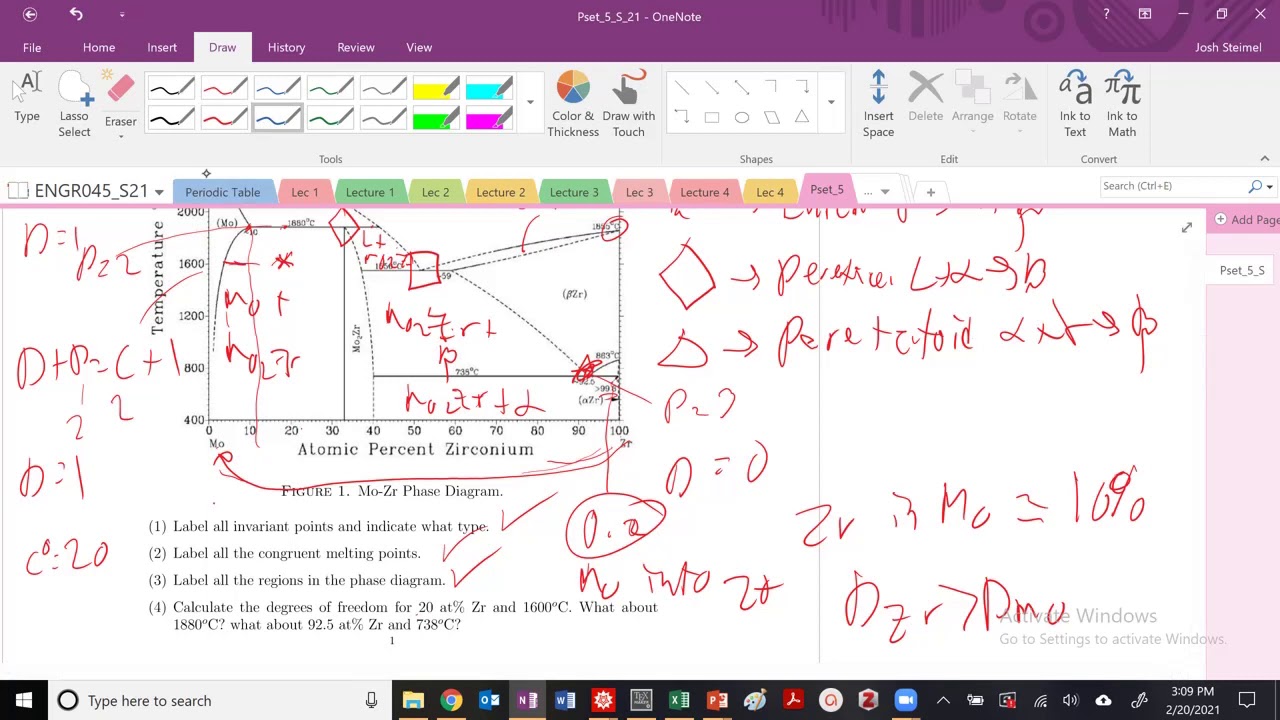 Pset_5_S_21 - OneNote
Josh Steimel
File Home Insert Draw History Review View
Type
Lasso Select
Eraser
Color & Thickness
Draw with Touch
Insert Space
Delete
Arrange
Rotate
Ink to Text
Ink to Math
Tools
Shapes
Edit
Convert
ENGR045_S21
Periodic Table
Lec 1
Lecture 1
Lec 2
Lecture 2
Lecture 3
Lec 3
Lecture 4
Lec 4
Pset_5
...
Search (Ctrl+E)
Add Page
Pset_5_S
D=1
P=2
D+P=C+1
2
2
D=1
C°=20
Temperature
2000
1600
1200
800
400
(Mo)
1880°C
L+
Mo2Zr
59
1855°C
(βZr)
Mo +
Mo2Zr
Mo2Zr
Mo2Zr +
β
863°C
738°C
92.5
(αZr)
Mo2Zr + α
0 10 20 30 40 50 60 70 80 90 100
Mo
Zr
Atomic Percent Zirconium
Figure 1. Mo-Zr Phase Diagram.
(1) Label all invariant points and indicate what type.
(2) Label all the congruent melting points.
(3) Label all the regions in the phase diagram.
(4) Calculate the degrees of freedom for 20 at% Zr and 1600°C. What about
1880°C? what about 92.5 at% Zr and 738°C?
1
→ L+α→β
→ Peretectoid α+γ→β
P=3
D=0
Zr in Mo ≈ 10%
0.2
Mo into Zr
DZr > DMo
Activate Windows
Go to Settings to activate Windows.
Type here to search
3:09 PM
2/20/2021